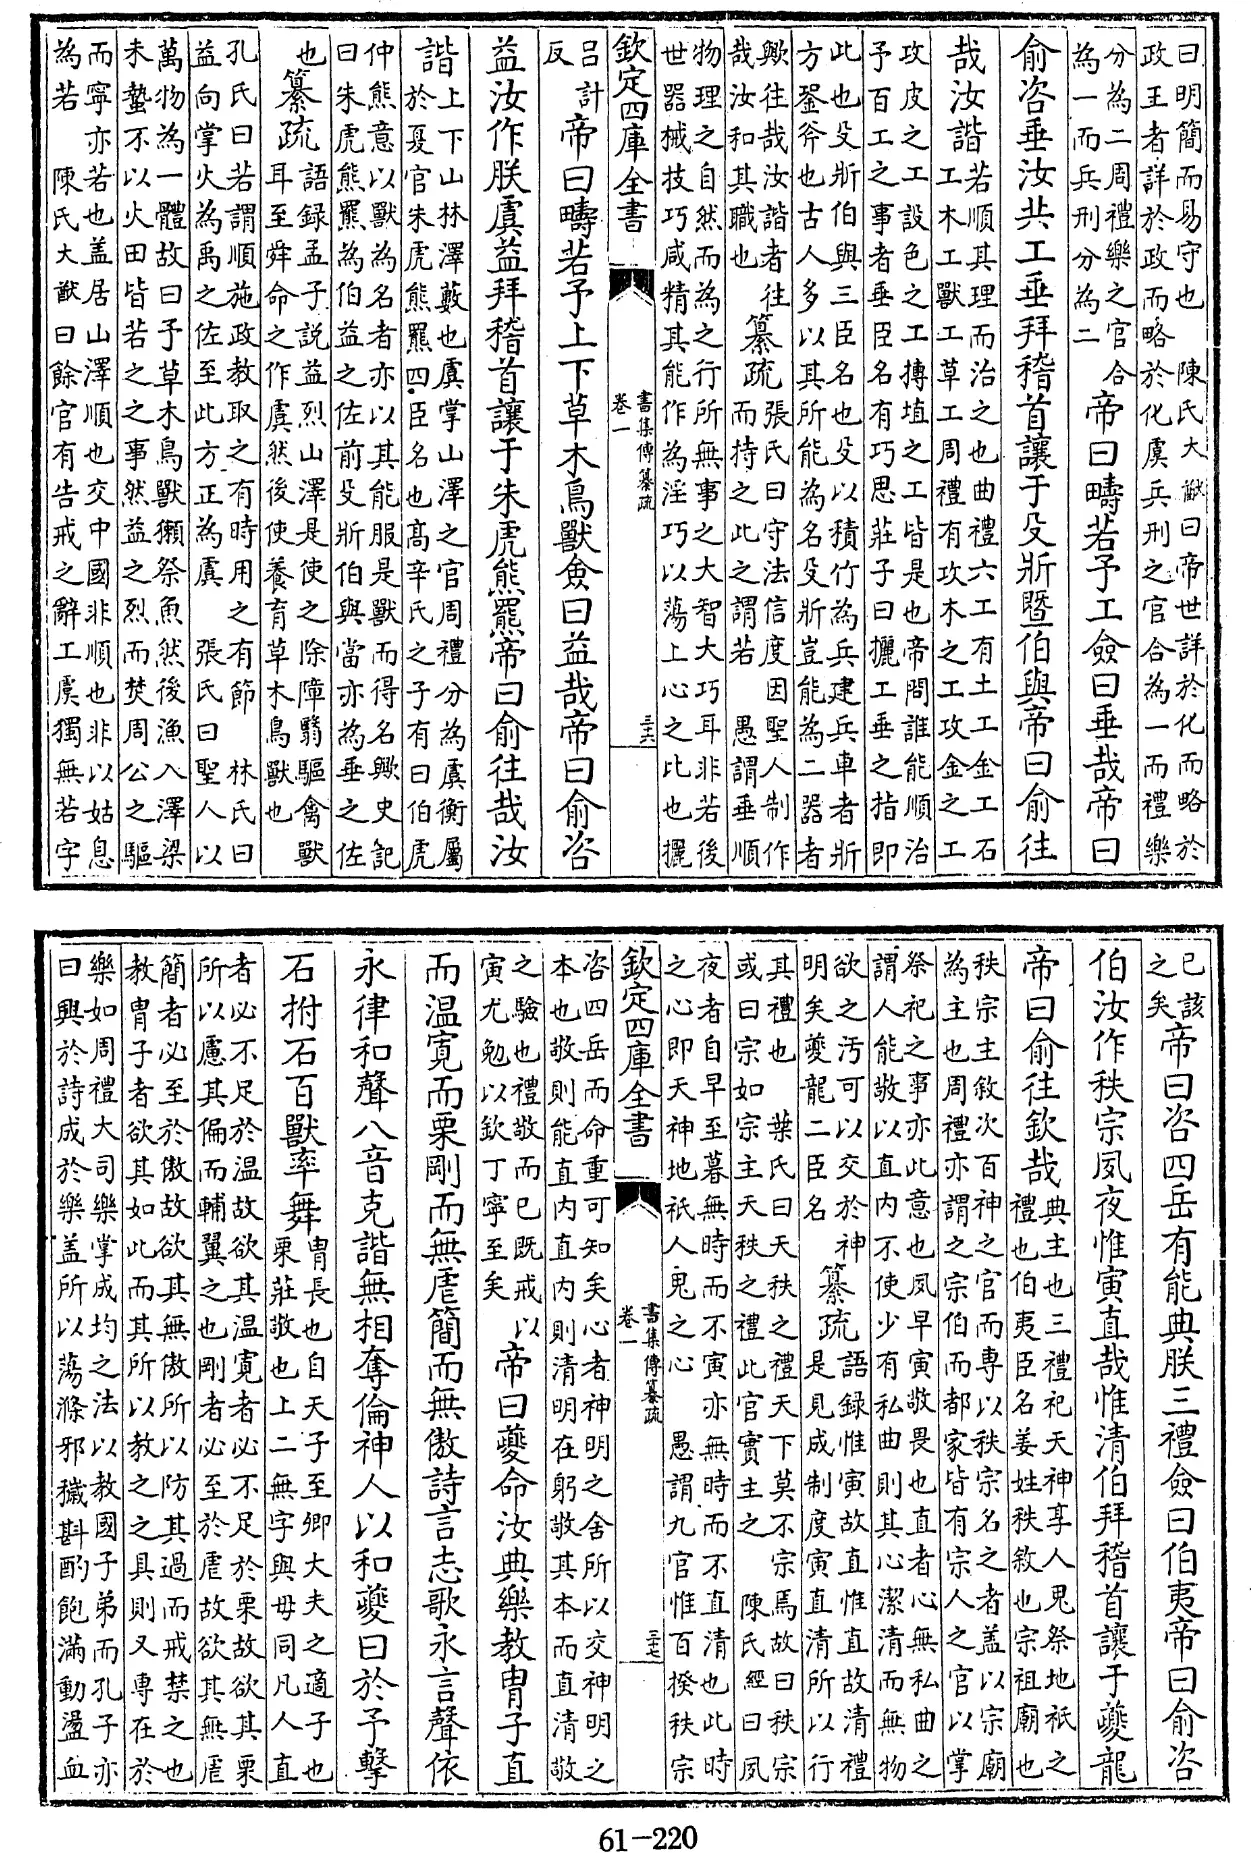 曰明簡而易守也　陳氏大猷曰帝世詳於化而略於
政王者詳於政而略於化虞兵刑之官合為一而禮樂
分為二周禮樂之官合
為一而兵刑分為二
帝曰疇若予工僉曰垂哉帝曰
俞咨垂汝共工垂拜稽首讓于殳斨暨伯與帝曰俞往
哉汝諧
若順其理而治之也曲禮六工有土工金工石
工木工獸工草工周禮有攻木之工攻金之工
攻皮之工設色之工摶埴之工皆是也帝問誰能順治
予百工之事者垂臣名有巧思莊子曰攦工垂之指即
此也殳斨伯與三臣名也殳以積竹為兵建兵車者斨
方銎斧也古人多以其所能為名殳斨豈能為二器者
歟往哉汝諧者往
哉汝和其職也
纂疏
張氏曰守法信度因聖人制作
而持之此之謂若　愚謂垂順
物理之自然而為之行所無事之大智大巧耳非若後
世器械技巧咸精其能作為淫巧以蕩上心之比也攦
欽定四庫全書
書集傳纂疏
卷一
三十六
呂計
反
帝曰疇若予上下草木鳥獸僉曰益哉帝曰俞咨
益汝作朕虞益拜稽首讓于朱虎熊羆帝曰俞往哉汝
諧
上下山林澤藪也虞掌山澤之官周禮分為虞衡屬
於夏官朱虎熊羆四臣名也高辛氏之子有曰伯虎
仲熊意以獸為名者亦以其能服是獸而得名歟史記
曰朱虎熊羆為伯益之佐前殳斨伯與當亦為垂之佐
也
纂疏
語録孟子説益烈山澤是使之除障翳驅禽獸
耳至舜命之作虞然後使養育草木鳥獸也
孔氏曰若謂順施政教取之有時用之有節　林氏曰
益向掌火為禹之佐至此方正為虞　張氏曰聖人以
萬物為一體故曰予草木鳥獸獺祭魚然後漁入澤梁
未蟄不以火田皆若之之事然益之烈而焚周公之驅
而寧亦若也盖居山澤順也交中國非順也非以姑息
為若　陳氏大猷曰餘官有告戒之辭工虞獨無若字
已該
之矣
帝曰咨四岳有能典朕三禮僉曰伯夷帝曰俞咨
伯汝作秩宗夙夜惟寅直哉惟清伯拜稽首讓于夔龍
帝曰俞往欽哉
典主也三禮祀天神享人鬼祭地祇之
禮也伯夷臣名姜姓秩敘也宗祖廟也
秩宗主敘次百神之官而專以秩宗名之者盖以宗廟
為主也周禮亦謂之宗伯而都家皆有宗人之官以掌
祭祀之事亦此意也夙早寅敬畏也直者心無私曲之
謂人能敬以直内不使少有私曲則其心潔清而無物
欲之汚可以交於神
明矣夔龍二臣名
纂疏
語録惟寅故直惟直故清禮
是見成制度寅直清所以行
其禮也　葉氏曰天秩之禮天下莫不宗焉故曰秩宗
或曰宗如宗主天秩之禮此官實主之　陳氏經曰夙
夜者自早至暮無時而不寅亦無時而不直清也此時
之心即天神地祇人鬼之心　愚謂九官惟百揆秩宗
欽定四庫全書
書集傳纂疏
卷一
三十七
咨四岳而命重可知矣心者神明之舍所以交神明之
本也敬則能直内直内則清明在躬敬其本而直清敬
之驗也禮敬而已既戒以
寅尤勉以欽丁寧至矣
帝曰夔命汝典樂教冑子直
而温寛而栗剛而無虐簡而無傲詩言志歌永言聲依
永律和聲八音克諧無相奪倫神人以和夔曰於予擊
石拊石百獸率舞
冑長也自天子至卿大夫之適子也
栗莊敬也上二無字與毋同凡人直
者必不足於温故欲其温寛者必不足於栗故欲其栗
所以慮其偏而輔翼之也剛者必至於虐故欲其無虐
簡者必至於傲故欲其無傲所以防其過而戒禁之也
教冑子者欲其如此而其所以教之之具則又專在於
樂如周禮大司樂掌成均之法以教國子弟而孔子亦
曰興於詩成於樂盖所以蕩滌邪穢斟酌飽滿動盪血
61-220